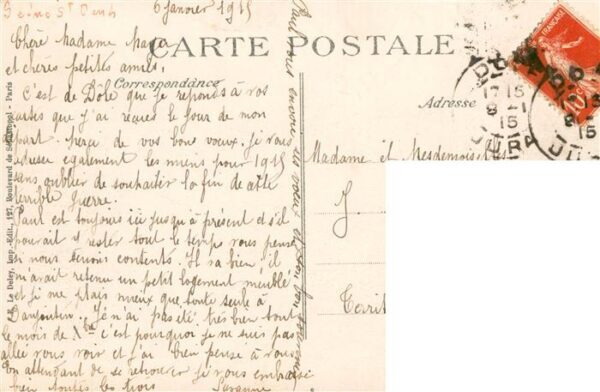 Seine St Denis
6 Janvier 1915
CARTE POSTALE
Correspondance
Adresse
Chère Madame
et chères petites amies,
C'est de Dôle que je réponds à vos
cartes que j'ai reçues le jour de mon
départ. Merci de vos bons voeux. Je vous
adresse également les miens pour 1915
sans oublier de souhaiter la fin de cette
terrible guerre.
Paul est toujours ici jusqu'à présent et s'il
pourait y rester tout le temps vous pensez
si nous serions contents. Il va bien, il
m'avait retenu un petit logement meublé
et je me plais mieux que toute seule à
Danjoutin. Je n'ai pas été très bien tout
le mois de c'est pourquoi je ne suis pas
allée vous voir et j'ai bien pensé à vous
En attendant de se retrouver je vous embrasse
bien toutes les trois
Suzanne
Paul vous envoie ses voeux et son bon souvenir
Madame et Mesdemoiselle
J
Territ
Le Deley, Imp.-Edit., 127, Boulevard de Sébastopol - Paris
JURA
15
10